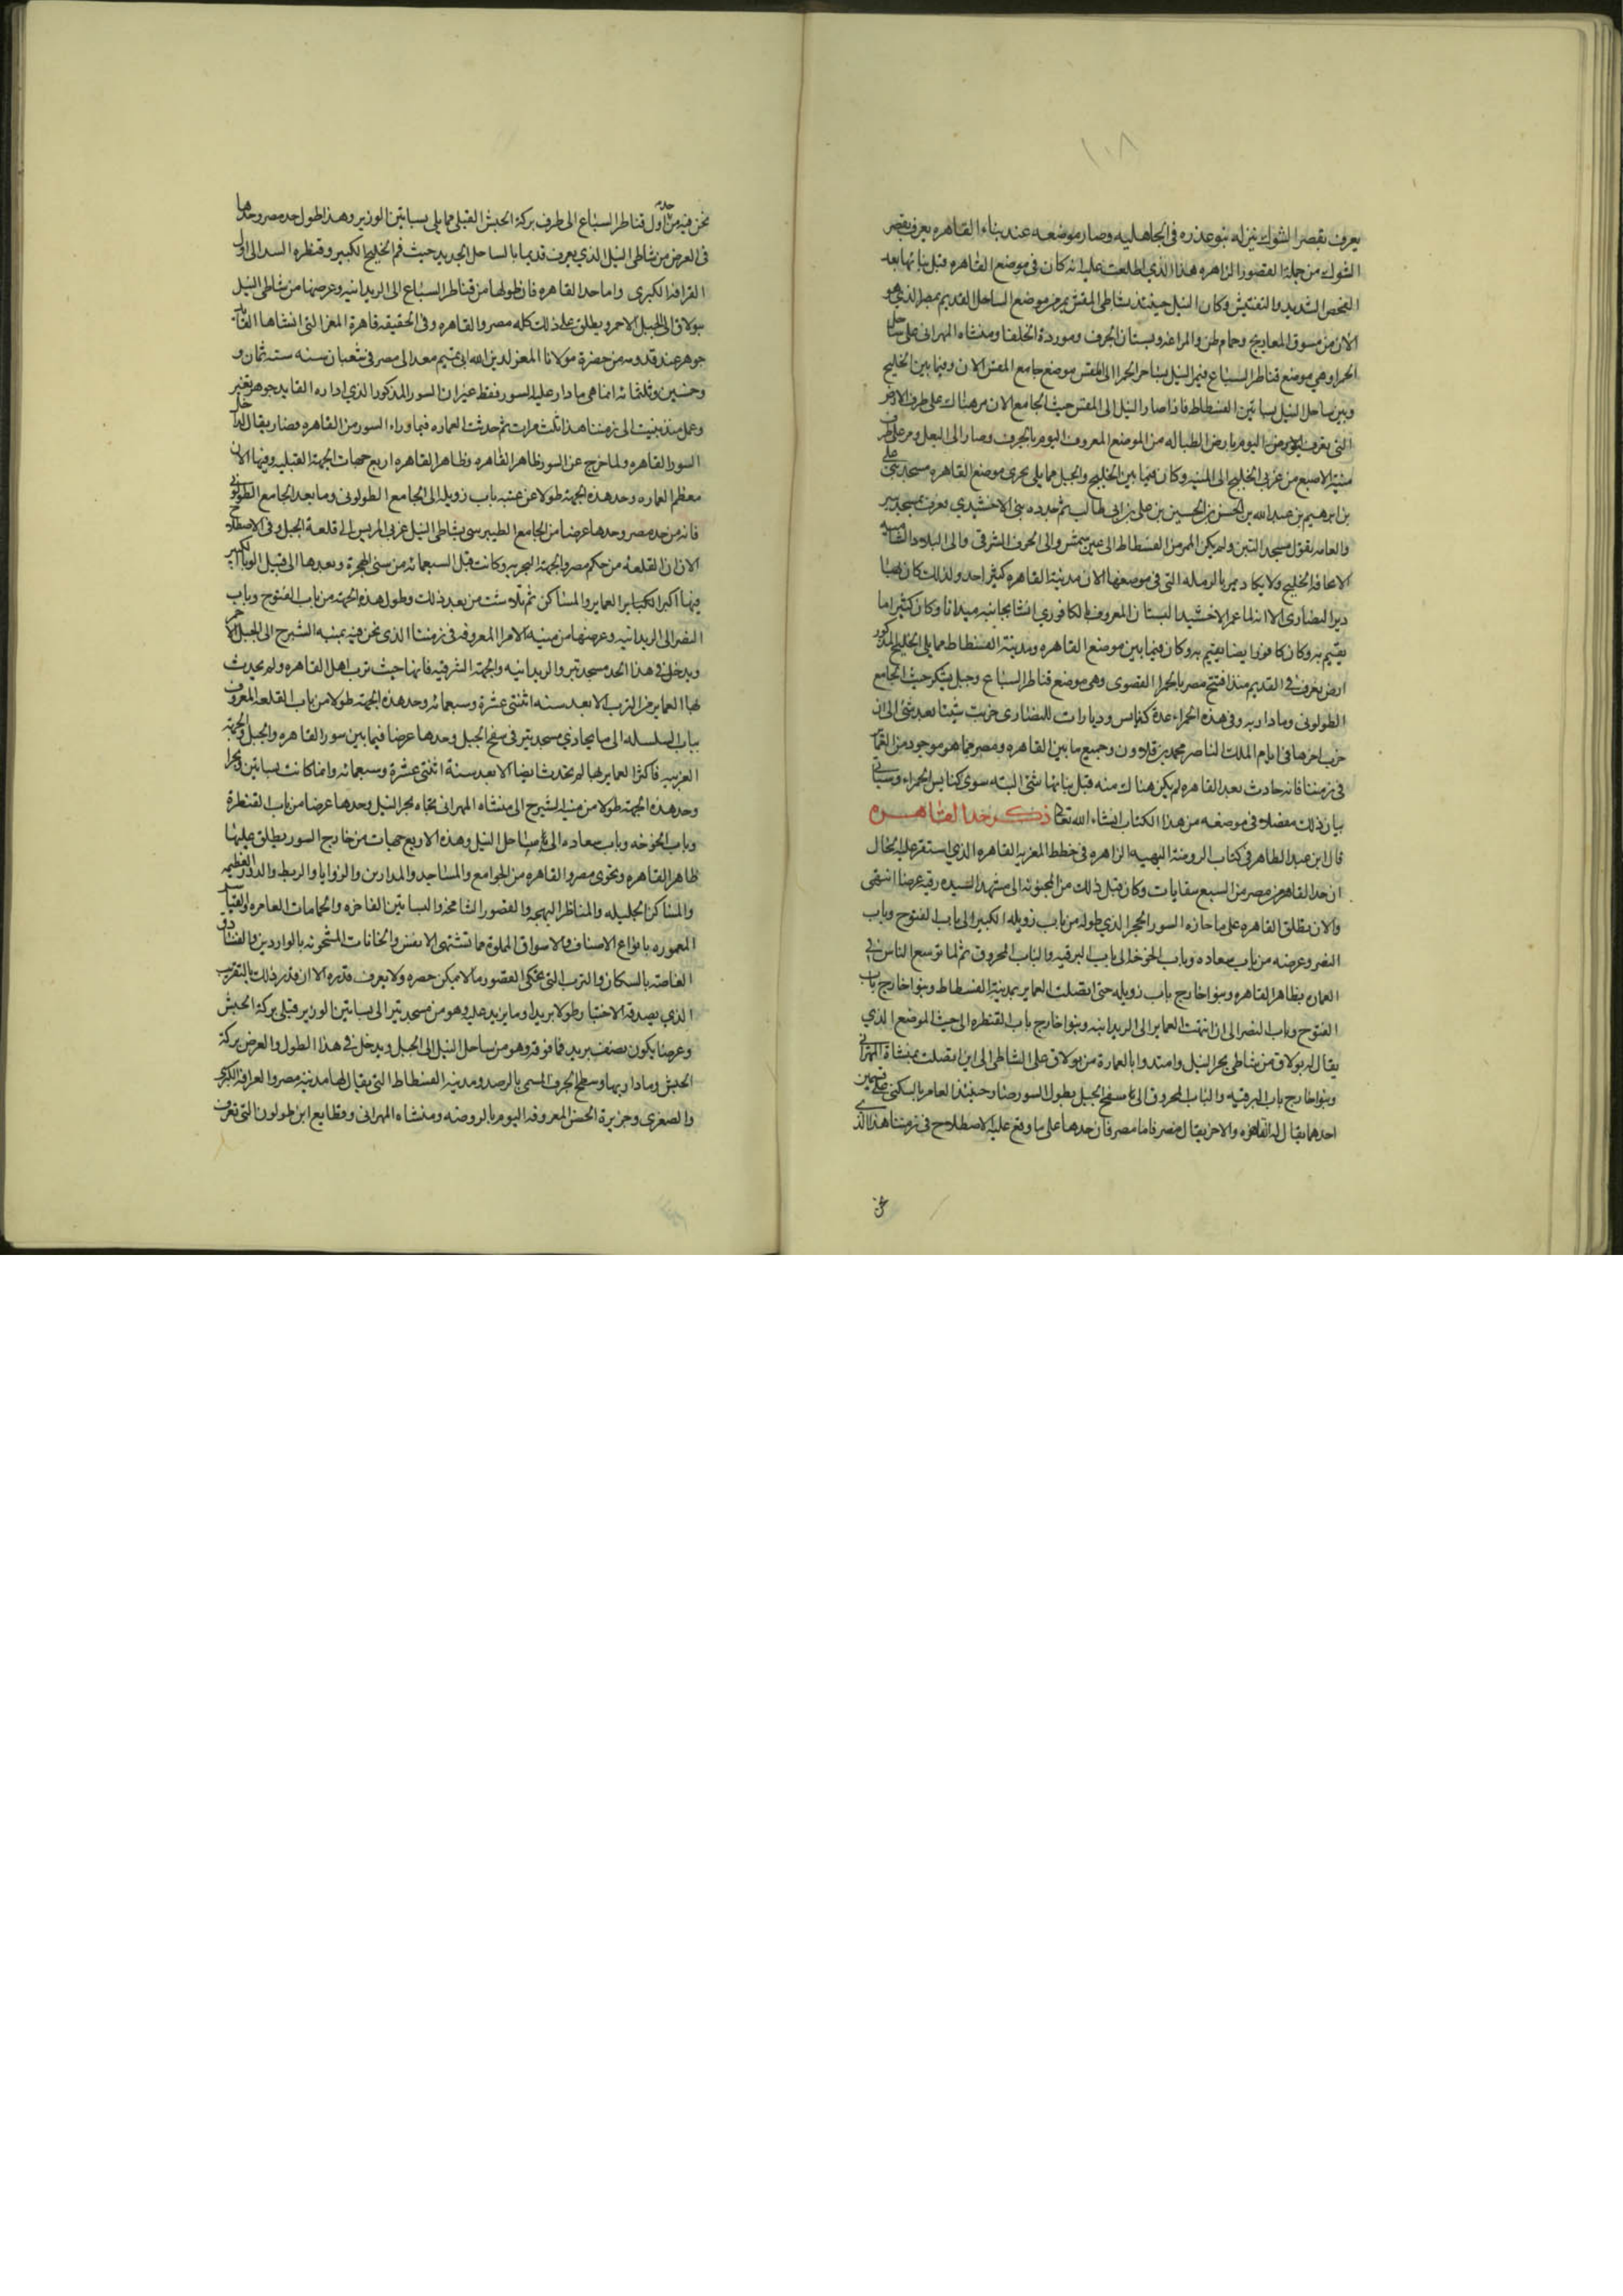 ١٠٨
يعرف بقصر الشوك ينزله بنو عذره في الجاهليه وصار موضعه عند بناء القاهره يعرف بقصر
الشوك من جملة القصور الزاهره هذا الذي اطلعت عليه انه كان في موضع القاهره قبل بنائها بعد
الفحص الشديد والتفتيش وكان النيل حينئذ بشاطي المقس يمر من موضع الساحل القديم بمصر الذي هو
الان من سوق المعاريج وحمام طن والمراغه وبستان الجرف وموردة الخلفا ومنشاه المهراني على ساحل
الحمرا وهي موضع قناطر السباع فيمر النيل بساحل الحمرا الى المقس موضع جامع المقس الان وفيما بين الخليج
وبين ساحل النيل بساتين الفسطاط فاذا صار النيل الى المقس حيث الجامع الان مر هناك على طرف الارض
التي تعرف اليوم بارض الطباله من الموضع المعروف اليوم بالجرف وصار الى البعل ومر على طرف
منية الاصبع من غربي الخليج الى المنيه وكان فيما بين الخليج والجبل مما يلي بحري موضع القاهره مسجد بني على
بن ابرهيم بن عبد الله بن الحسن بن الحسين بن علي بن ابي طالب ثم جدده بني الاخشيدي يعرف بمسجد تبر
والعامه تقول مسجد التبن ولم يكن الممر من الفسطاط الى عين شمس والى الحوف الشرقي والى البلاد الشاميه
الا بحافة الخليج ولا يكاد يمر بالرمله التي في موضعها الان مدينة القاهره كثير احد ولذلك كان بها
دير النصارى الا انه لما عمر الاخشيد البستان المعروف بالكافوري انشا بجانبه ميدانا وكان كثيرا ما
يقيم به وكان كافور ايضا يقيم به وكان فيما بين موضع القاهره ومدينة الفسطاط مما يلي الخليج المذكور
ارض تعرف في القديم منذ افتتح مصر بالحمرا القصوى وهي موضع قناطر السباع وجبل يشكر حيث الجامع
الطولوني وما دار به وفي هذه الحمراء عدة كنايس وديارات للنصارى خربت شيئا بعد شيء الى ان
خرب اخرها في ايام الملك الناصر محمد بن قلاوون وجميع ما بين القاهره ومصر مما هو موجود من العماير
في زمننا فانه حادث بعد القاهره لم يكن هناك منه قبل بنائها شي البته سوى كنايس الحمراء وسياتي
بيان ذلك مفصلا في موضعه من هذا الكتاب انشاء الله تعالى ذكر حد القاهره
قال ابن عبد الظاهر في كتاب الروضة البهيه الزاهره في خطط المعزيه القاهره الذي استقر عليه الحال
ان حد القاهره من مصر من السبع سقايات وكان قبل ذلك من المجنونه الى مشهد السيده رقيه عرضا انتهى
والان تطلق القاهره على ما حازه السور الحجر الذي طوله من باب زويله الكبير الى باب الفتوح وباب
النصر وعرضه من باب سعاده وباب الخوخه الى باب البرقيه والباب المحروق ثم لما توسع الناس في
العمار بظاهر القاهره وبنوا خارج باب زويله حتى اتصلت العماير بمدينة الفسطاط وبنوا خارج باب
الفتوح وباب النصر الى ان انتهت العماير الى الريدانيه وبنوا خارج باب القنطره الى حيث الموضع الذي
يقال له بولاق من شاطي بحر النيل وامتدوا بالعمارة من بولاق على الشاطي الى ان اتصلت بمنشاة المهراني
وبنوا خارج باب البرقيه والباب المحروق الى سفح الجبل بطول السور صار حينئذ العامر بالسكنى على قسمين
احدهما يقال له القاهره والاخر يقال مصر فاما مصر فان حدها على ما وقع عليه الاصطلاح في زمننا هذا الذي
نحن
نحن فيه من حد اول قناطر السباع الى طرف بركة الحبش القبلي مما يلي بساتين الوزير وهذا طول حد مصر وحدها
في العرض من شاطي النيل الذي يعرف قديما بالساحل الجديد حيث فم الخليج الكبير وقنطره السد الى اول
القرافة الكبرى واما حد القاهره فان طولها من قناطر السباع الى الريدانيه وعرضها من شاطي النيل
ببولاق الى الجبل الاحمر ويطلق على ذلك كله مصر والقاهره وفي الحقيقه قاهرة المعز التي انشاها القايد
جوهر عند قدومه من حضرة مولانا المعز لدين الله ابي تميم معد الى مصر في شعبان سنه سته ثمان و
وخمسين وثلثمائه انما هي ما دار عليه السور فقط غير ان السور المذكور الذي اداره القايد جوهر تغير
وعمل منذ بنيت الى زمننا هذا ثلث مرات ثم حدثت العماره فيما وراء السور من القاهره فصار يقال لداخل
السور القاهره ولما خرج عن السور ظاهر القاهره وظاهر القاهره اربع جهات الجهة القبليه وفيها الان
معظم العماره وحد هذه الجهة طولا من عتبه باب زويله الى الجامع الطولوني وما بعد الجامع الطولوني
فانه من حد مصر وحدها عرضا من الجامع الطيبرسي بشاطي النيل غربي المريس الى قلعة الجبل وفي الاصطلاح
الان ان القلعه من حكم مصر والجهة البحريه وكانت قبل السبعمائه من سني الهجرة وبعدها الى قبيل الوباء الكبير
فيها اكبر العماير والمساكن ثم تلاشت من بعد ذلك وطول هذه الجهة من باب الفتوح وباب
النصر الى الريدانيه وعرضها من منيه الامرا المعروفه في زمننا الذي نحن فيه بمنيه الشيرج الى الجبل الاحمر
ويدخل في هذا الحد مسجد تبر والريدانيه والجهة الشرقيه فانها حيث ترب اهل القاهره ولم يحدث
بها العماير من الترب الا بعد سنه اثنتي عشرة وسبعمائه وحد هذه الجهة طولا من باب القلعه المعروف
بباب السلسله الى ما يحاذي مسجد تبر في سفح الجبل وحدها عرضا فيما بين سور القاهره والجبل والجهة
الغربيه فاكثر العماير بها لم تحدث ايضا الا بعد سنة اثنتي عشرة وسبعمائه وانما كانت بساتين وبحرا
وحد هذه الجهة طولا من منية الشيرج الى منشاه المهراني بحافه بحر النيل وحدها عرضا من باب القنطرة
وباب الخوخه وباب سعاده الى ساحل النيل وهذه الاربع جهات من خارج السور يطلق عليها
ظاهر القاهره وتحوى مصر والقاهره من الجوامع والمساجد والمدارس والزوايا والربط والدور العظيمه
والمساكن الجليله والمناظر البهجه والقصور الشامخه والبساتين الفاخره والحمامات العامره والقياسر
المعموره بانواع الاصناف والاسواق المملوة مما تشتهي الانفس والخانات المشحونه بالواردين والفنادق
الغاصه بالسكان والترب التي تحكي القصور ما لا يمكن حصره ولا يعرف قدره الا ان قدر ذلك بالتقريب
الذي يصدقه الاختبار طولا بريدا وما يزيد عليه وهو من مسجد تبر الى بساتين الوزير قبلي بركة الحبش
وعرضا يكون نصف بريد فما فوقه وهو من ساحل النيل الى الجبل ويدخل في هذا الطول والعرض بركة
الحبش وما دار بها وسطح الجرف المسمى بالرصد ومدينه الفسطاط التي يقال لها مدينه مصر والقرافه الكبرى
والصغرى وجزيرة الحصن المعروفه اليوم بالروضه ومنشاه المهراني وقطايع ابن طولون التي تعرف